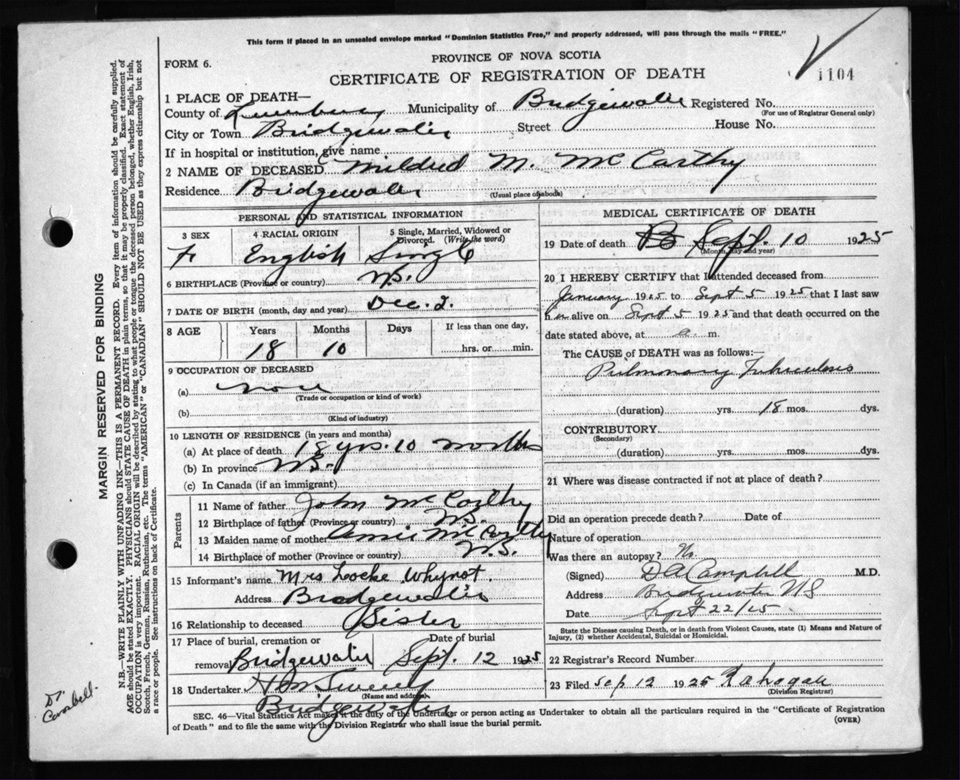 This form if placed in an unsealed envelope marked "Dominion Statistics Free," and properly addressed, will pass through the mails "FREE."
FORM 6.
PROVINCE OF NOVA SCOTIA
CERTIFICATE OF REGISTRATION OF DEATH
1104
1 PLACE OF DEATH—
County of Lunenburg Municipality of Bridgewater Registered No.
(For use of Registrar General only)
City or Town Bridgewater Street House No.
If in hospital or institution, give name
2 NAME OF DECEASED Mildred M. McCarthy
Residence Bridgewater
(Usual place of abode)
PERSONAL AND STATISTICAL INFORMATION
3 SEX
F.
4 RACIAL ORIGIN
English
5 Single, Married, Widowed or Divorced. (Write the word)
Single
6 BIRTHPLACE (Province or country) N.S.
7 DATE OF BIRTH (month, day and year) Dec. 2.
8 AGE
Years Months Days If less than one day,
18 10 hrs. or min.
9 OCCUPATION OF DECEASED
(a) None
(Trade or occupation or kind of work)
(b)
(Kind of industry)
10 LENGTH OF RESIDENCE (in years and months)
(a) At place of death 18 yrs. 10 months
(b) In province N.S.
(c) In Canada (if an immigrant)
Parents
11 Name of father John McCarthy
12 Birthplace of father (Province or country) N.S.
13 Maiden name of mother Annie McCarthy
14 Birthplace of mother (Province or country) N.S.
15 Informant's name Mrs Locke Whynot.
Address Bridgewater
16 Relationship to deceased Sister
17 Place of burial, cremation or removal Bridgewater
Date of burial Sept. 12 1925
18 Undertaker
(Name and address)
Bridgewater
MEDICAL CERTIFICATE OF DEATH
19 Date of death Sept. 10 1925
(Month, day and year)
20 I HEREBY CERTIFY that I attended deceased from
January 1925 to Sept 5 1925 that I last saw
her alive on Sept 5 1925 and that death occurred on the
date stated above, at a. m.
The CAUSE OF DEATH was as follows:—
Pulmonary Tuberculosis
(duration) yrs. 18 mos. dys.
CONTRIBUTORY
(Secondary)
(duration) yrs. mos. dys.
21 Where was disease contracted if not at place of death?
Did an operation precede death? Date of
Nature of operation
Was there an autopsy? No
(Signed) D A Campbell M.D.
Address Bridgewater N S
Date Sept 22/25
State the Disease causing Death, or in death from Violent Causes, state (1) Means and Nature of Injury, (2) whether Accidental, Suicidal or Homicidal.
22 Registrar's Record Number
23 Filed Sep 12 1925
(Division Registrar)
SEC. 46—Vital Statistics Act makes it the duty of the Undertaker or person acting as Undertaker to obtain all the particulars required in the "Certificate of Registration
of Death" and to file the same with the Division Registrar who shall issue the burial permit.
(OVER)
MARGIN RESERVED FOR BINDING
N.B.—WRITE PLAINLY WITH UNFADING INK—THIS IS A PERMANENT RECORD. Every item of information should be carefully supplied.
AGE should be stated EXACTLY. PHYSICIANS should STATE CAUSE OF DEATH in plain terms, so that it may be properly classified. Exact statement of
OCCUPATION is very important. RACIAL ORIGIN will be described by stating to what people or tongue the deceased person belonged, whether English, Irish,
Scotch, French, German, Russian, Ruthenian, etc. The terms "AMERICAN" or "CANADIAN" SHOULD NOT BE USED as they express citizenship but not
a race or people. See instructions on back of Certificate.
Dr.
Campbell.